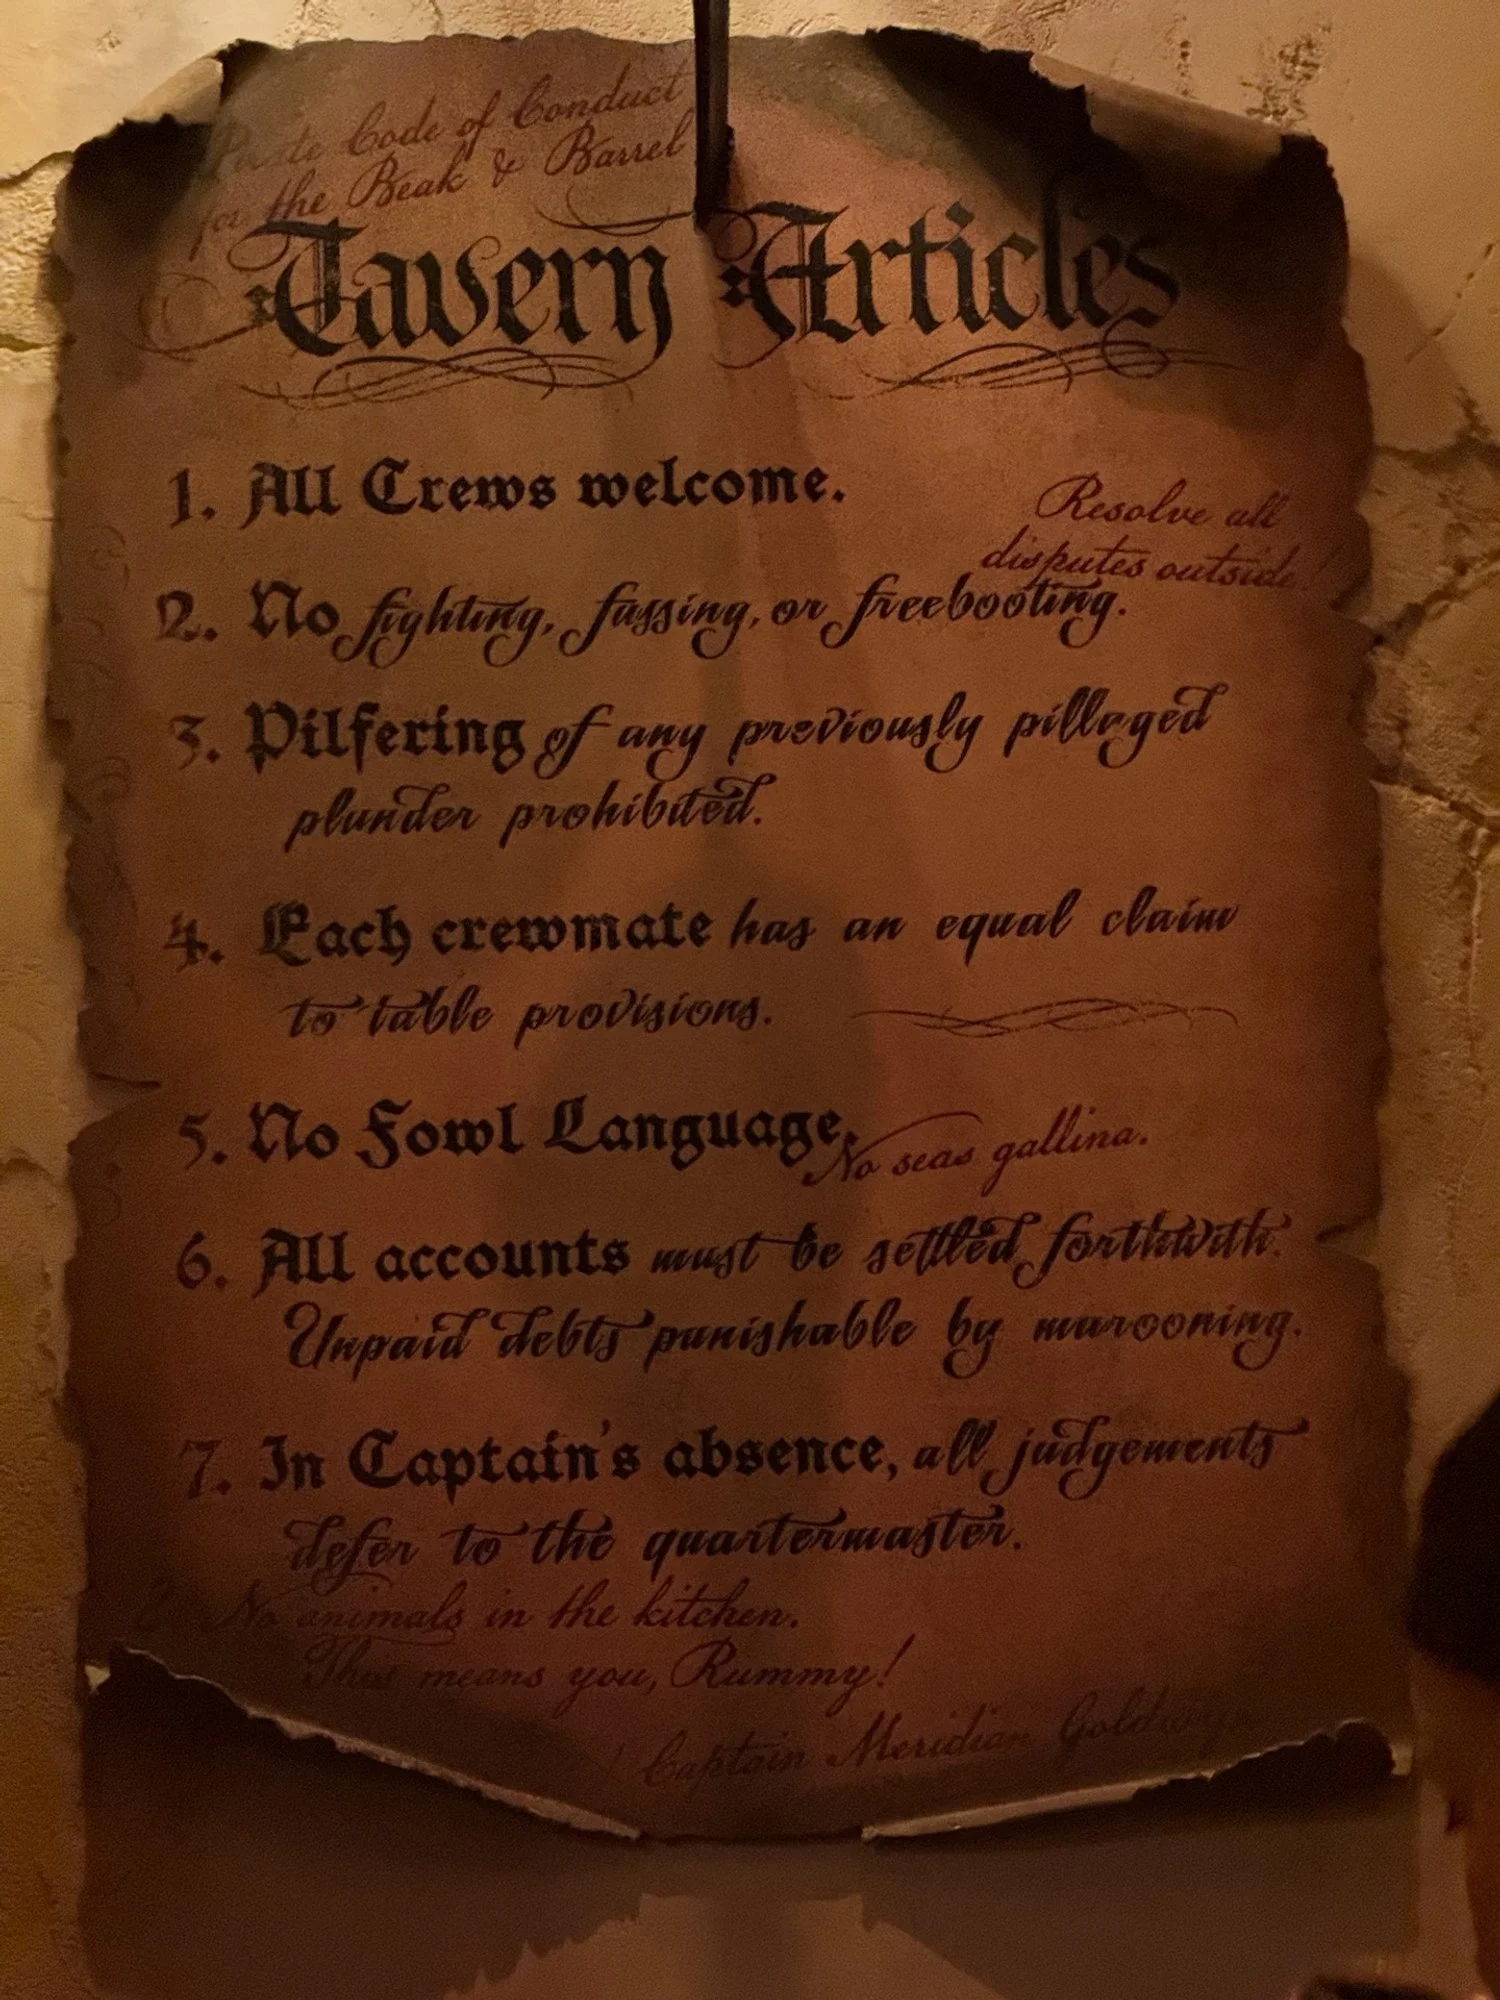 Pirate Code of Conduct
for the Beak & Barrel
Tavern Articles
1. All Crews welcome.
Resolve all
disputes outside!
2. No fighting, fussing, or freebooting.
3. Pilfering of any previously pillaged
plunder prohibited.
4. Each crewmate has an equal claim
to table provisions.
5. No Fowl Language.
No seas gallina.
6. All accounts must be settled forthwith.
Unpaid debts punishable by marooning.
7. In Captain's absence, all judgements
defer to the quartermaster.
No animals in the kitchen.
This means you, Rummy!
Captain Meridian